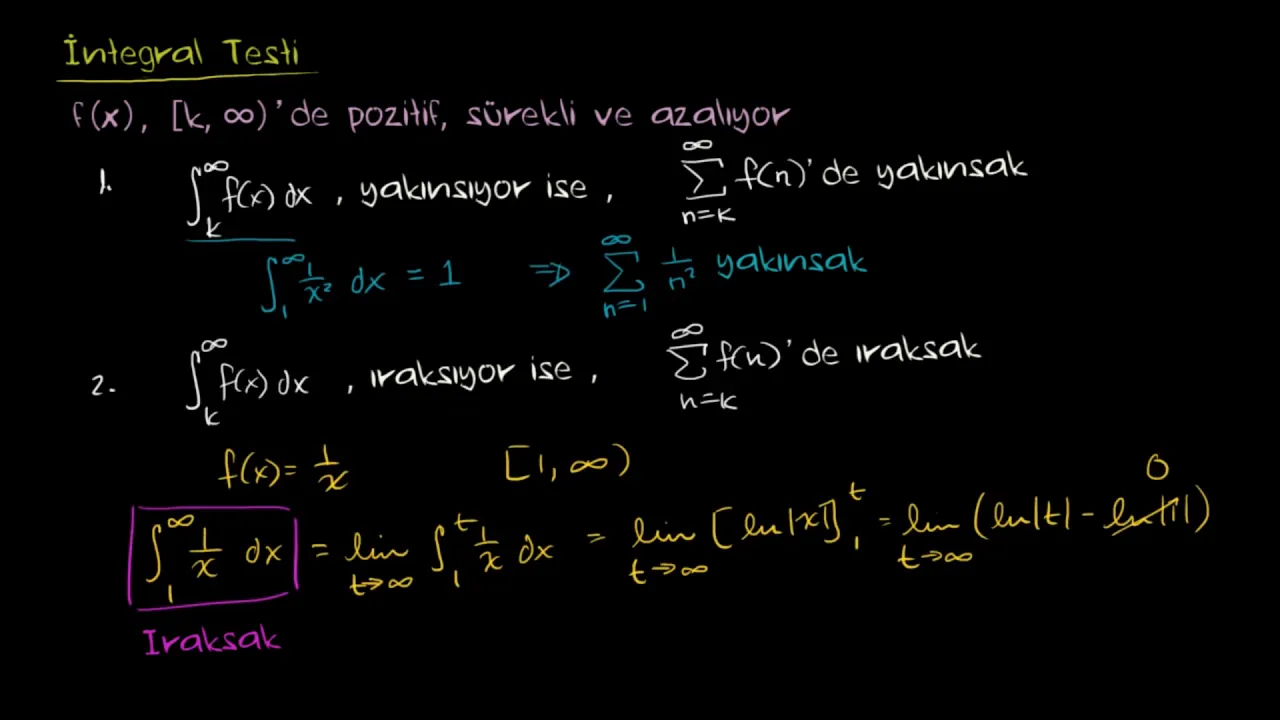 İntegral Testi
f(x), [k, ∞)'de pozitif, sürekli ve azalıyor
1. ∫_k^∞ f(x) dx , yakınsıyor ise , ∑_{n=k}^∞ f(n)'de yakınsak
∫_1^∞ 1/x² dx = 1 ⇒ ∑_{n=1}^∞ 1/n² yakınsak
2. ∫_k^∞ f(x) dx , ıraksıyor ise , ∑_{n=k}^∞ f(n)'de ıraksak
f(x) = 1/x [1, ∞)
∫_1^∞ 1/x dx = lim_{t→∞} ∫_1^t 1/x dx = lim_{t→∞} [ln|x|]_1^t = lim_{t→∞} (ln|t| - ln|1|) 0
Iraksak